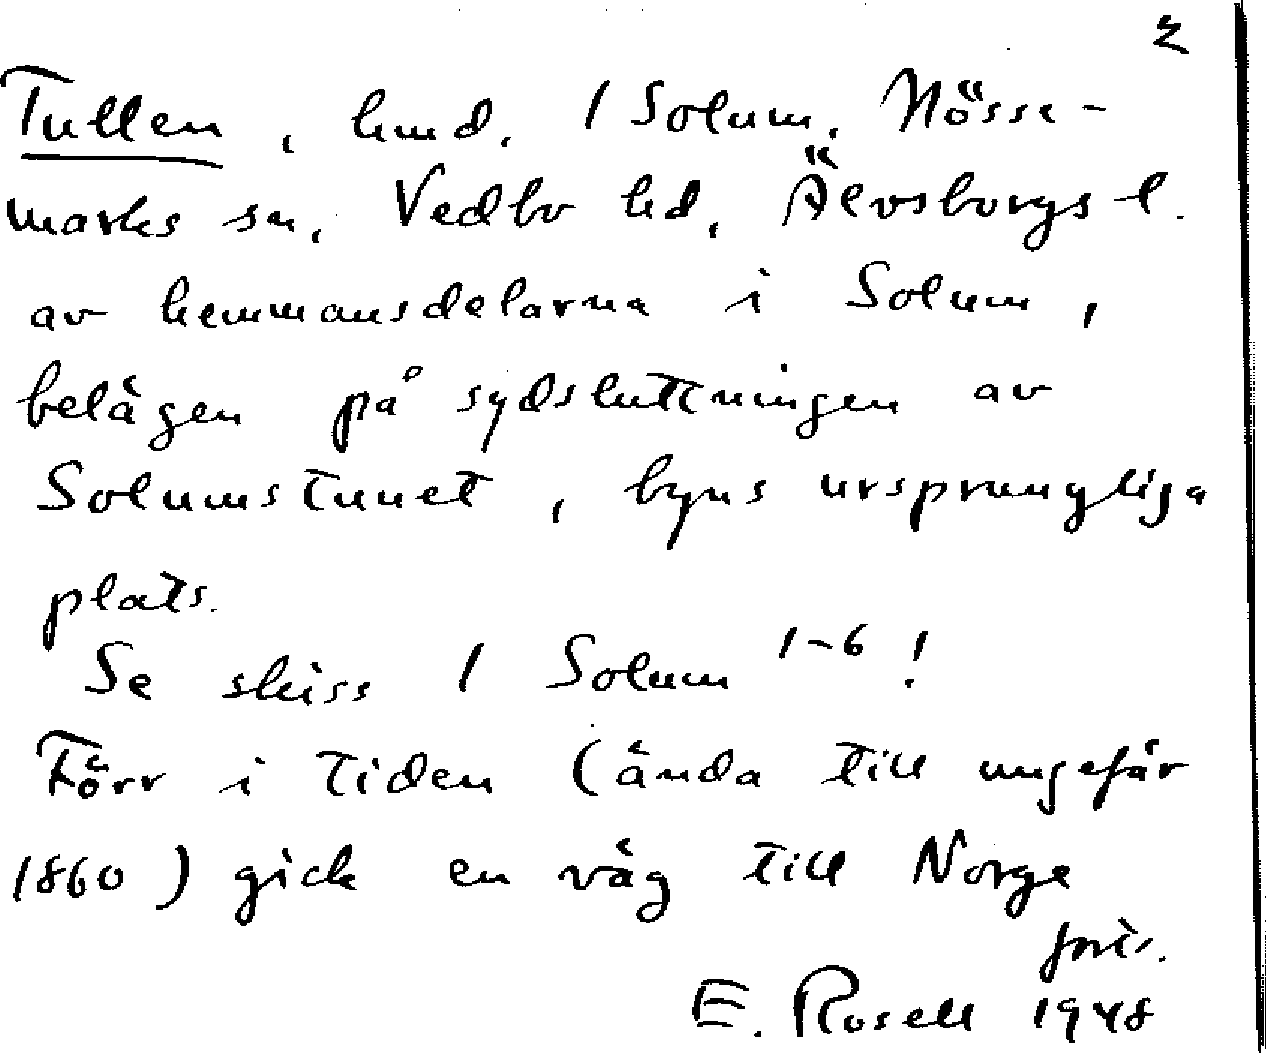 2
Tullen, hmd. 1 Solum, Nösse-
marks sn, Vedbo hd, Älvsborgs l.
av hemmansdelarna i Solum,
belägen på sydsluttningen av
Solumstunet, byns ursprungliga
plats.
Se skiss 1 Solum 1-6!
Förr i tiden (ända till ungefär
1860) gick en väg till Norge
forts.
E. Rosell 1948